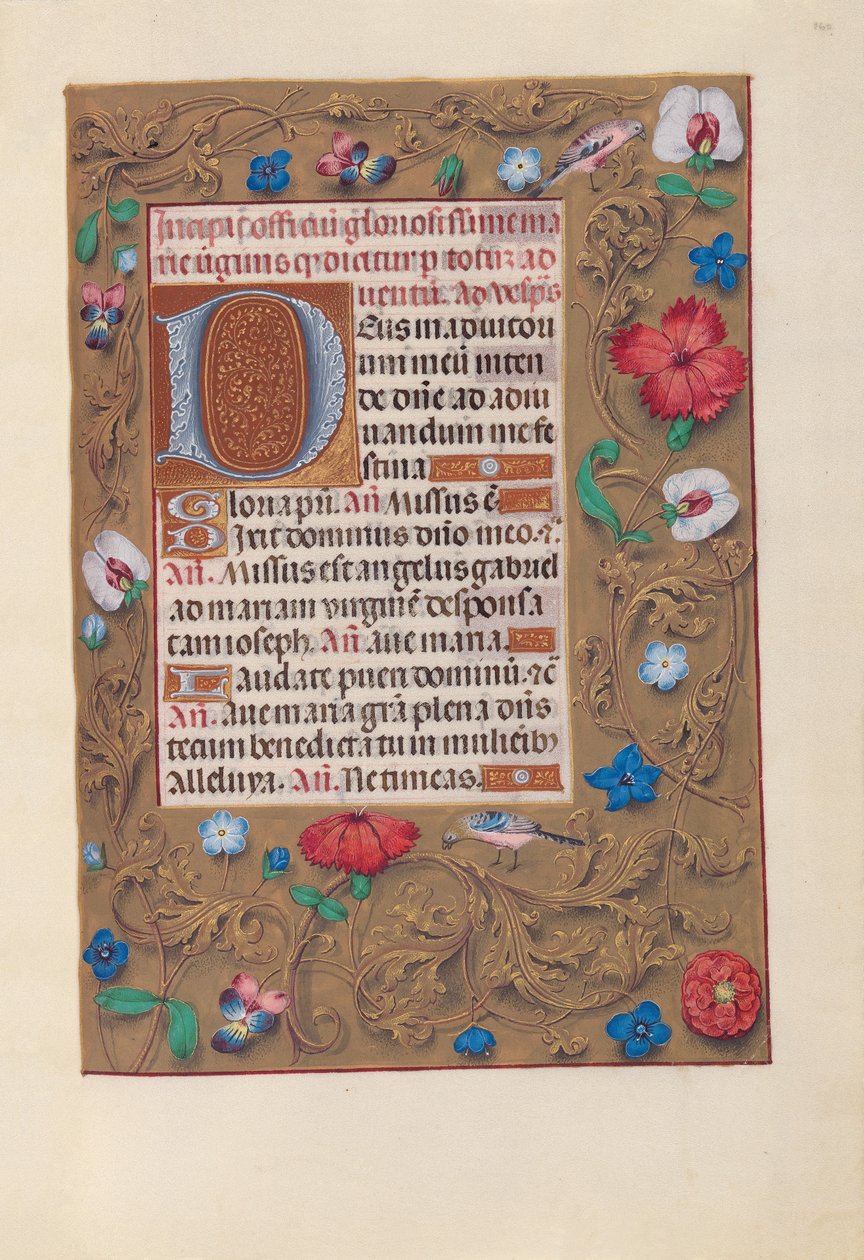 Incipit officiū gloriosissime ma
rie ūginis q̄ dicitur p̱ totū ad
uentū. Ad vesp̄s
Deus in adiutori
um meū inten
de dn̄e ad adiu
uandum me fe
stina
Gloria pr̄i. An̄. Missus ē
Dixit dominus dn̄o meo. ⁊c̄.
An̄. Missus est angelus gabriel
ad mariam virginē desponsa
tam ioseph. An̄. aue maria.
Laudate pueri dominū. ⁊c̄
An̄. aue maria grā plena dn̄s
tecum benedicta tu in mulierib⁊
Alleluya. An̄. Ne timeas.